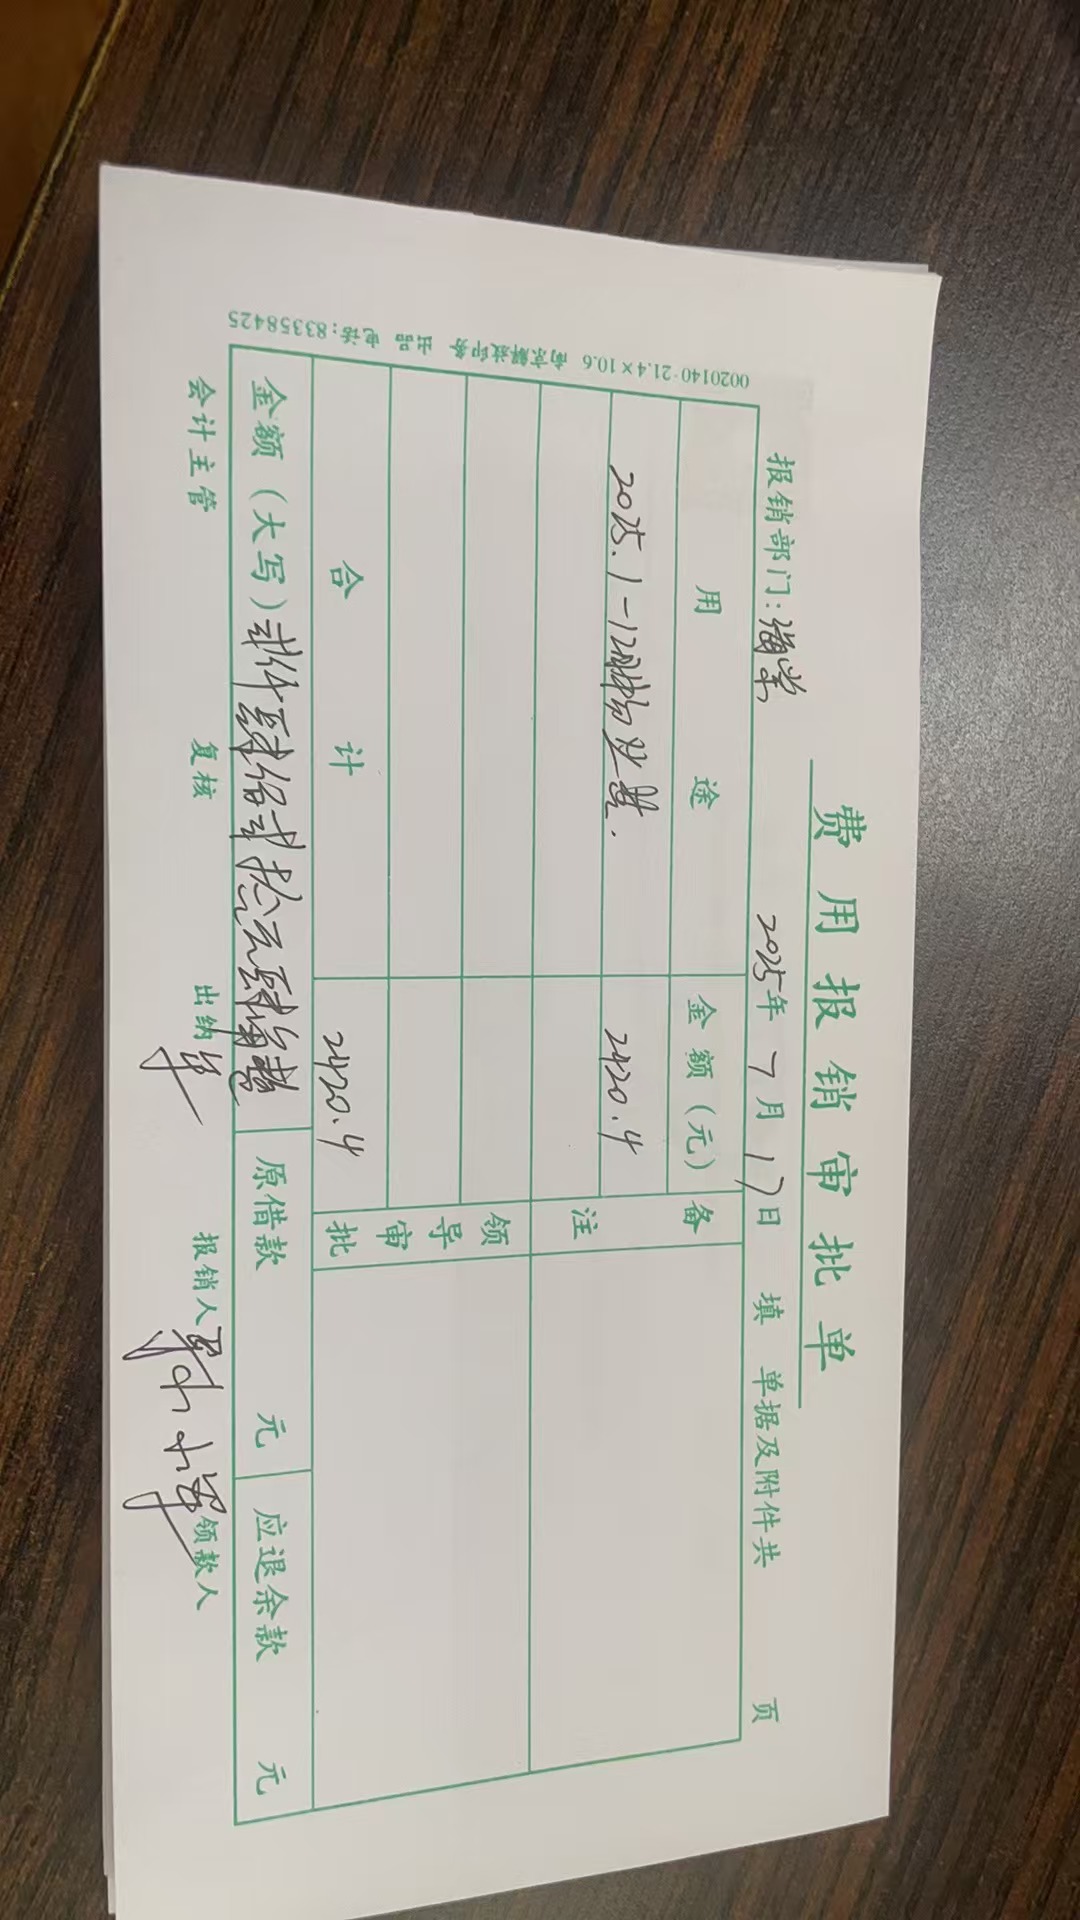 费用报销审批单
报销部门：海棠 2025年7月17日 填 单据及附件共 页
用途 金额（元） 备注
2025.1-12月物业费. 2420.4
领导审批
合计 2420.4
金额（大写）贰仟肆佰贰拾元肆角整 原借款 元 应退余款 元
会计主管 复核 出纳 报销人 领款人
0020140·21.4×10.6 南京解放印务 出品 电话：83358425